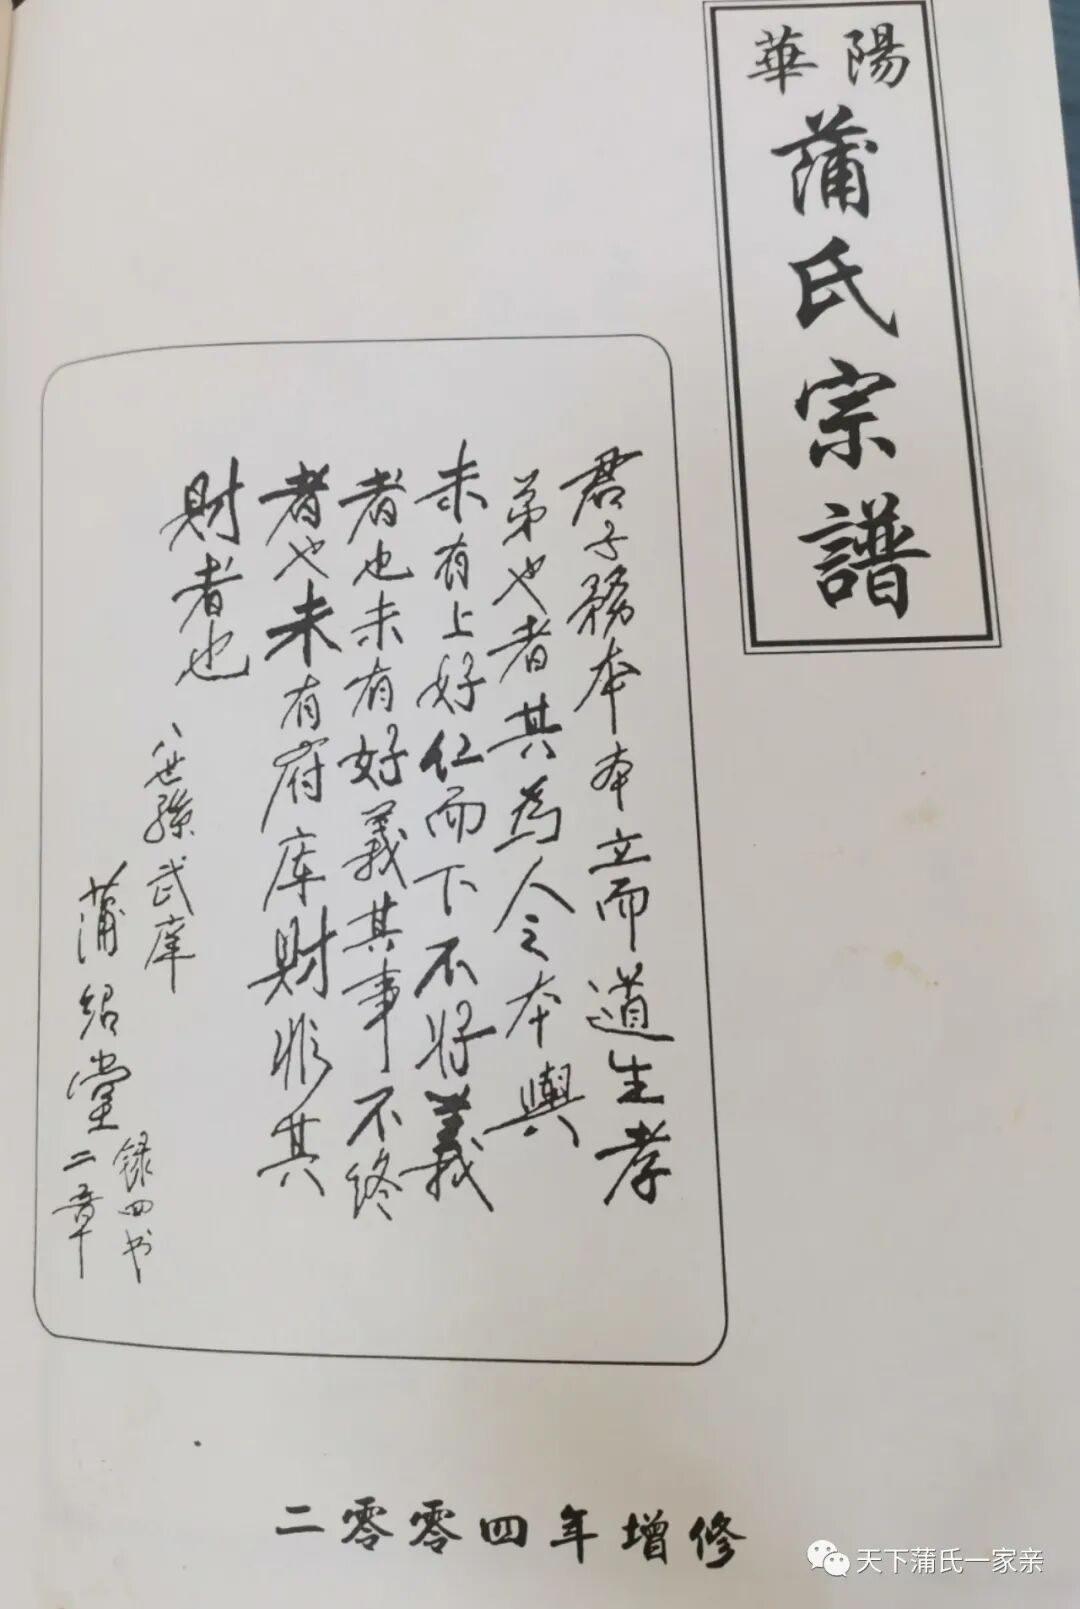 華陽
蒲氏宗譜
君子務本本立而道生孝
弟也者其為人之本與
未有上好仁而下不好義
者也未有好義其事不终
者也未有府库財非其
財者也
八世孫武庠
蒲紹堂
録四书
二章
二零零四年增修
天下蒲氏一家亲